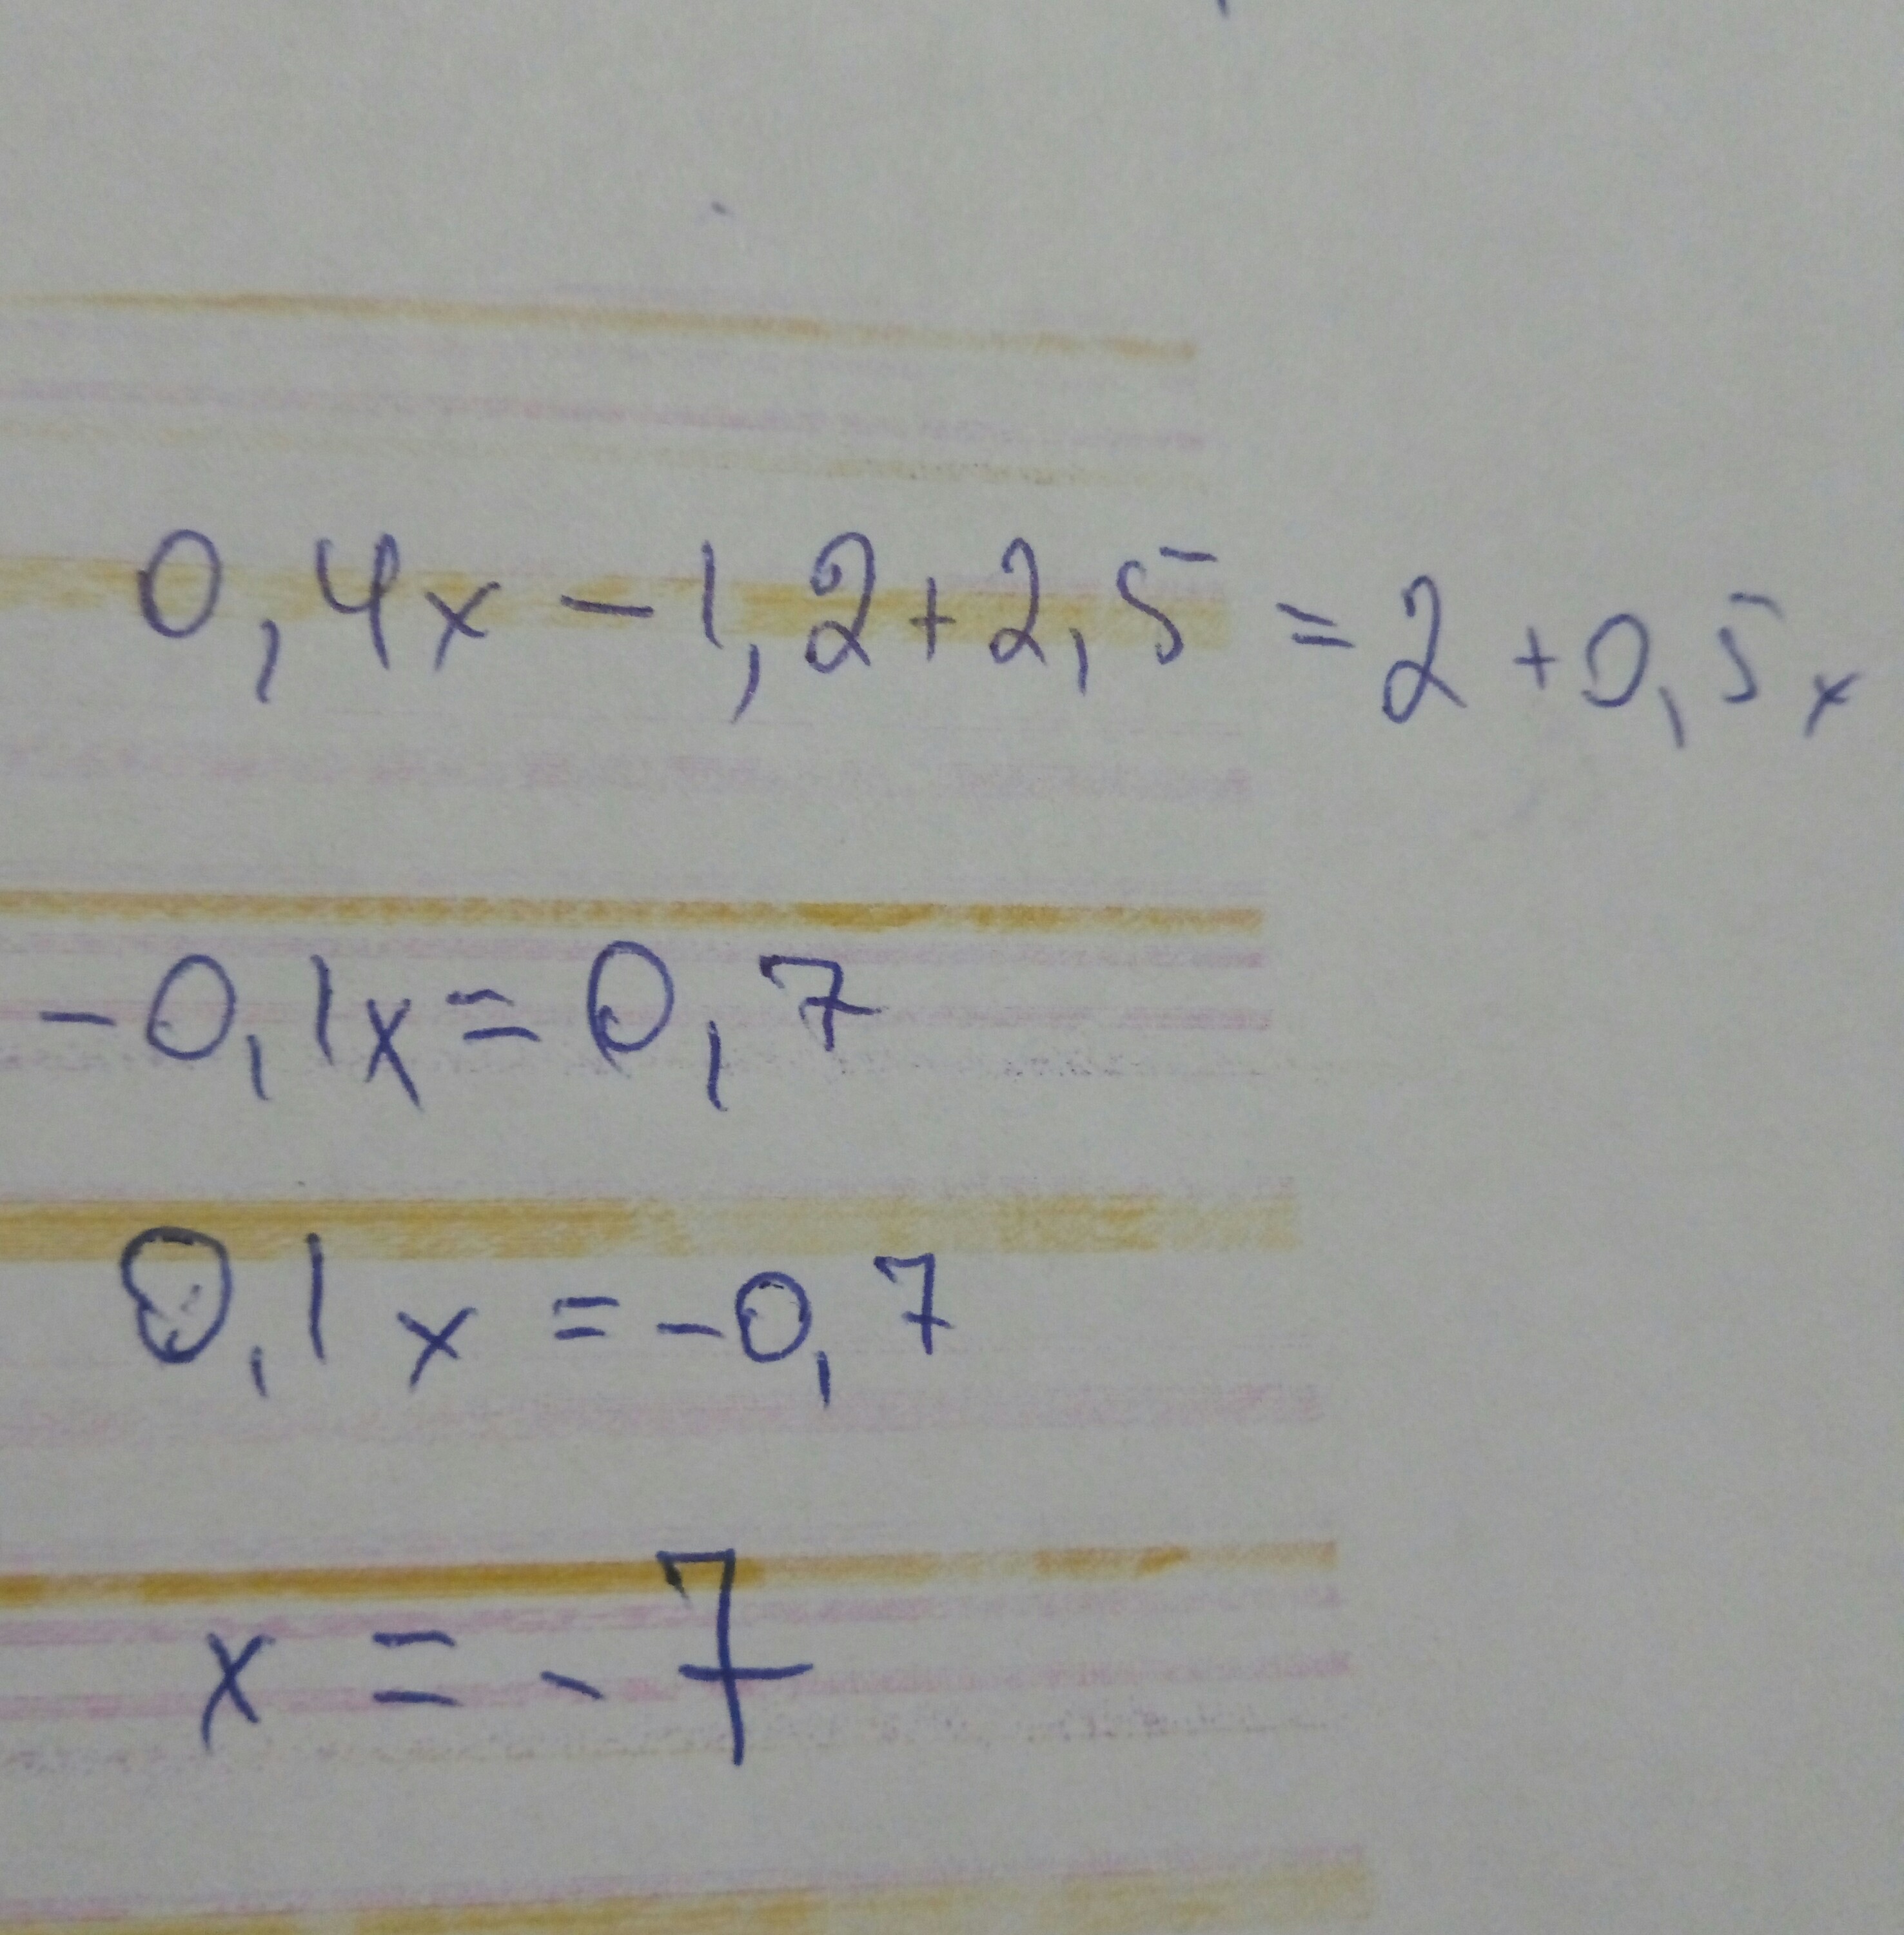 0,4x - 1,2 + 2,5 = 2 + 0,5x
-0,1x = 0,7
0,1x = -0,7
x = -7